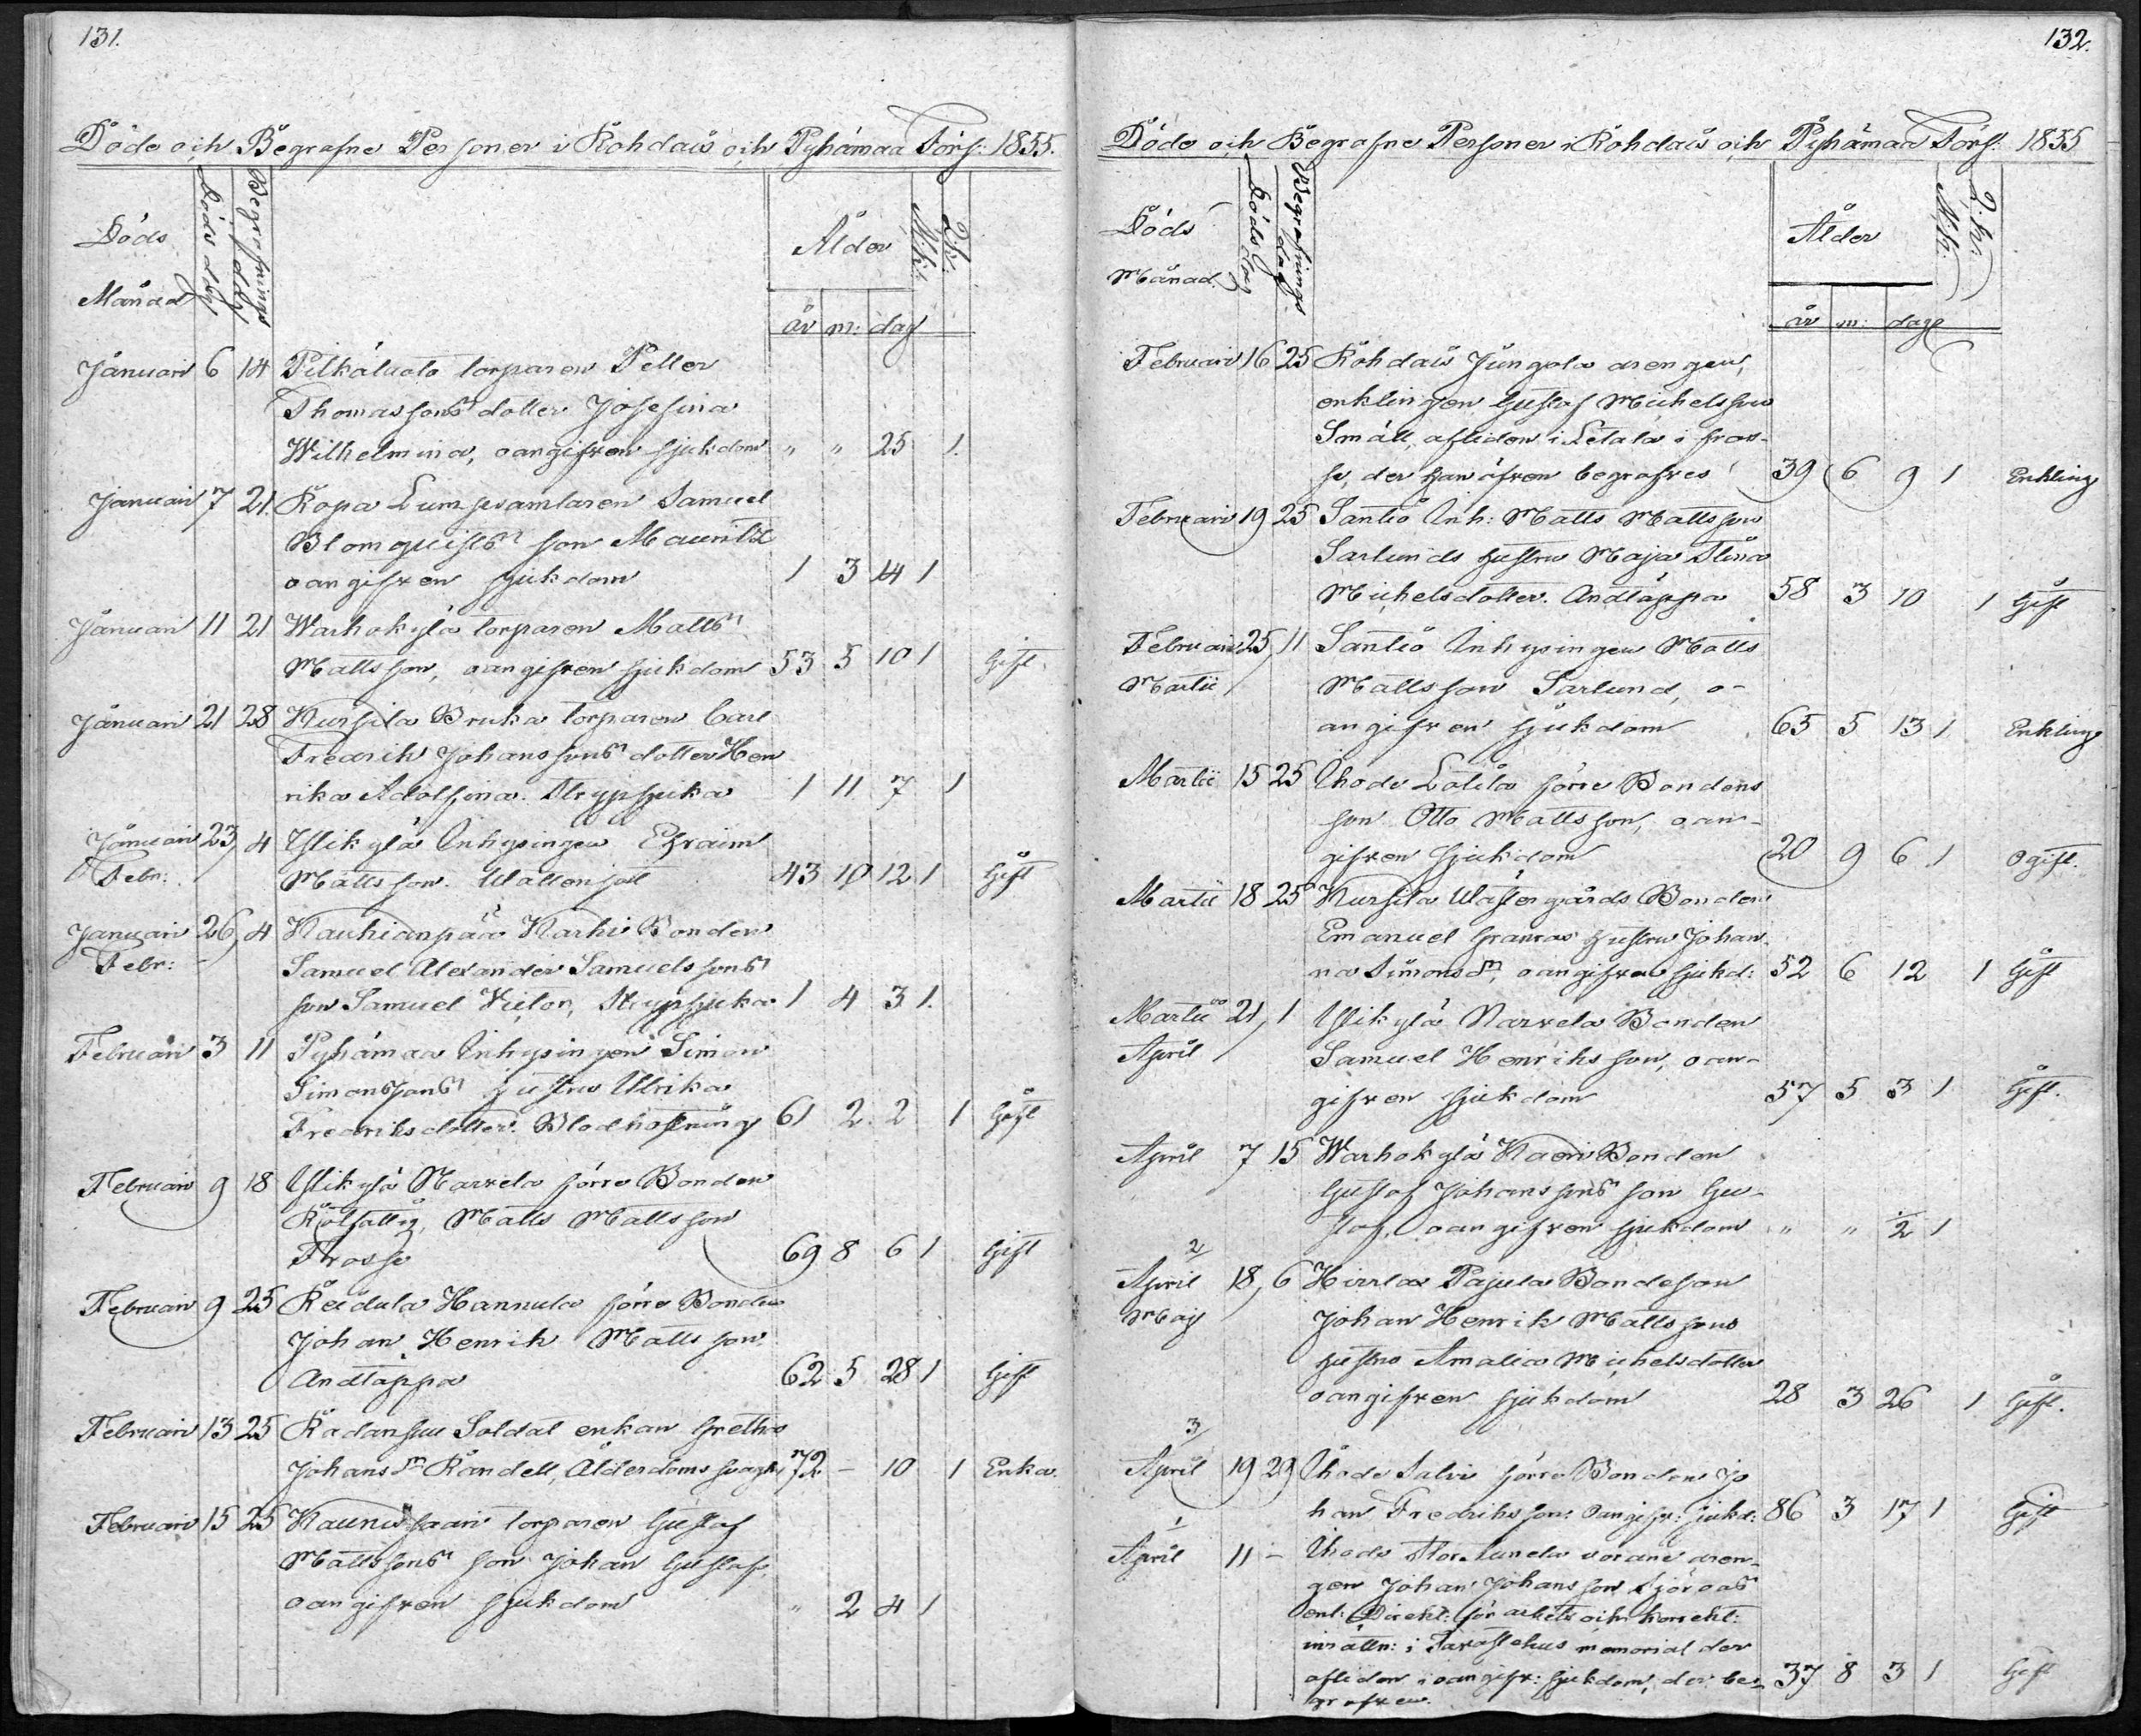 131.
Döde och Begrafne Personer i Rohdais och Pyhämaa Förs: 1855.
Döds Månad
Döds dag
Begrafnings dag
Ålder
år m: dag
M.k:
Q.k:
Januari 6 14 Pitkäluoto torparen Petter
Thomassons dotter Josefina
Wilhelmina, oangifven sjukdom " " 25 1.
Januari 7 21. Ropa Lumpsamlaren Samuel
Blomquists son Mauritz
oangifven sjukdom 1 3 14 1
Januari 11 21 Warhokylä torparen Matts
Mattsson, oangifven sjukdom 53 5 10 1 Gift.
Januari 21 28 Kursila Bruka torparen Carl
Fredrik Johanssons dotter Hen
rika Adolfina. Strypsjuka 1 11 7 1
Januari 23, 4 Ylikylä Inhysingen Efraim
Febr: Mattsson. Wattensot 43 10 12 1 Gift
Januari 26, 4 Kauhianpää Karhi Bonden
Febr: Samuel Alexander Samuelssons
son Samuel Victor, Strypsjuka 1 4 3 1.
Februari 3 11 Pyhämaa Inhysingen Simon
Simonssons hustru Ulrika
Fredriksdotter. Blodhostning 61 2 2 1 Gift
Februari 9 18 Ylikylä Narvela förre Bonden
Rotfattig, Matts Mattsson
Frosse 69 8 6 1 Gift
Februari 9 25 Reidula Hannula förre Bonden
Johan Henrik Mattsson
Andtäppa 62 5 28 1 Gift
Februari 13 25 Radansuu Soldat enkan Gretha
Johans dr Randell, Ålderdoms svagh: 72 - 10 1 Enka.
Februari 15 25 Kaunissaari torparen Gustaf
Mattssons son Johan Gustaf,
oangifven sjukdom " 2 4 1
132.
Döde och Begrafne Personer i Rohdais och Pyhämaa Förs: 1855
Döds Månad.
Döds dag
Begrafnings dag
Ålder
år m: dag
M.k:
Q.k:
Februari 16 25 Rohdais Jungola drengen,
enklingen Gustaf Michelsson
Småll, afliden i Letala i fros-
sa, der han äfven begrafves 39 6 9 1 Enkling
Februari 19 25 Santio Inh: Matts Mattsson
Sarlunds hustru Maja Stina
Michelsdotter. Andtäppa 58 3 10 1 Gift
Februari 25, 11 Santio Inhysingen Matts
Martii Mattsson Sarlund, o-
angifven sjukdom 65 5 13 1 Enkling
Martii 15 25 Ihode Lålila förre Bondens
son Otto Mattsson, oan-
gifven sjukdom 20 9 6 1 Ogift.
Martii 18 25 Kursila Wästergårds Bonden
Emanuel Granroos hustru Johan-
na Simons dr, oangifven sjukd: 52 6 12 1 Gift
Martii 21, 1 Ylikylä Narvela Bonden
April Samuel Henriksson, oan-
gifven sjukdom 57 5 3 1 Gift.
April 7 15 Warhokylä Kaeri Bonden
Gustaf Johanssons son Gu-
staf, oangifven sjukdom " " 1/2 1
2/
April 18, 6 Hirslax Pajula Bondeson
Maij Johan Henrik Mattssons
hustru Amalia Michelsdotter
oangifven sjukdom 28 3 26 1 Gift.
3/
April 19 29 Ihode Salvi förre Bonden Jo
han Fredriksson: Oangifv: sjukd: 86 3 17 1 Gift
1/
April 11 - Ihode Stor Junela varand dren-
gen Johan Johansson Sjöroos
enl: Direkt: för arbets och korrekt:
inrättn: i Tavastehus memorial der
afliden i oangifv: sjukdom, der be- 37 8 3 1 Gift
grafven.